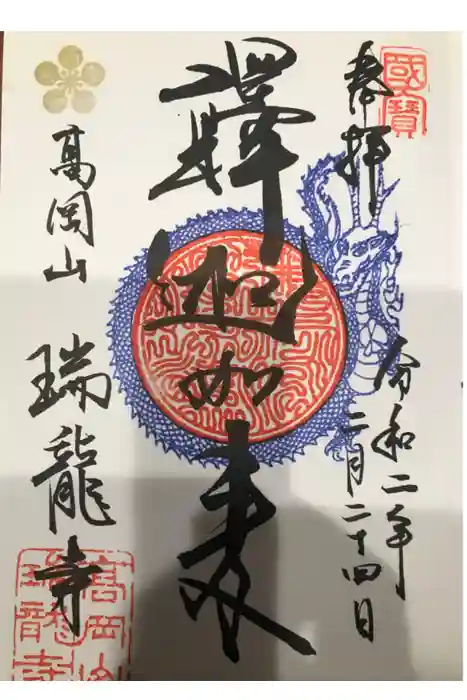 國寶
奉拝
令和二年
二月二十四日
釋迦如来
高岡山
瑞龍寺